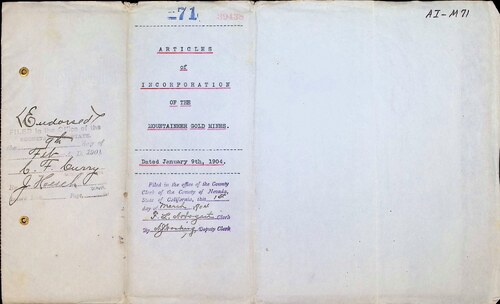 271
AI-M71
ARTICLES
of
INCORPORATION
OF THE
MOUNTAINEER GOLD MINES.
Dated January 9th, 1904.
Filed in the office of the County
Clerk of the County of Nevada,
State of California, this 1st
day of March 1904
Clerk
By Deputy Clerk
(Endorsed)
FILED in the office of the
9th day of
Feb 1904
C. F. Curry